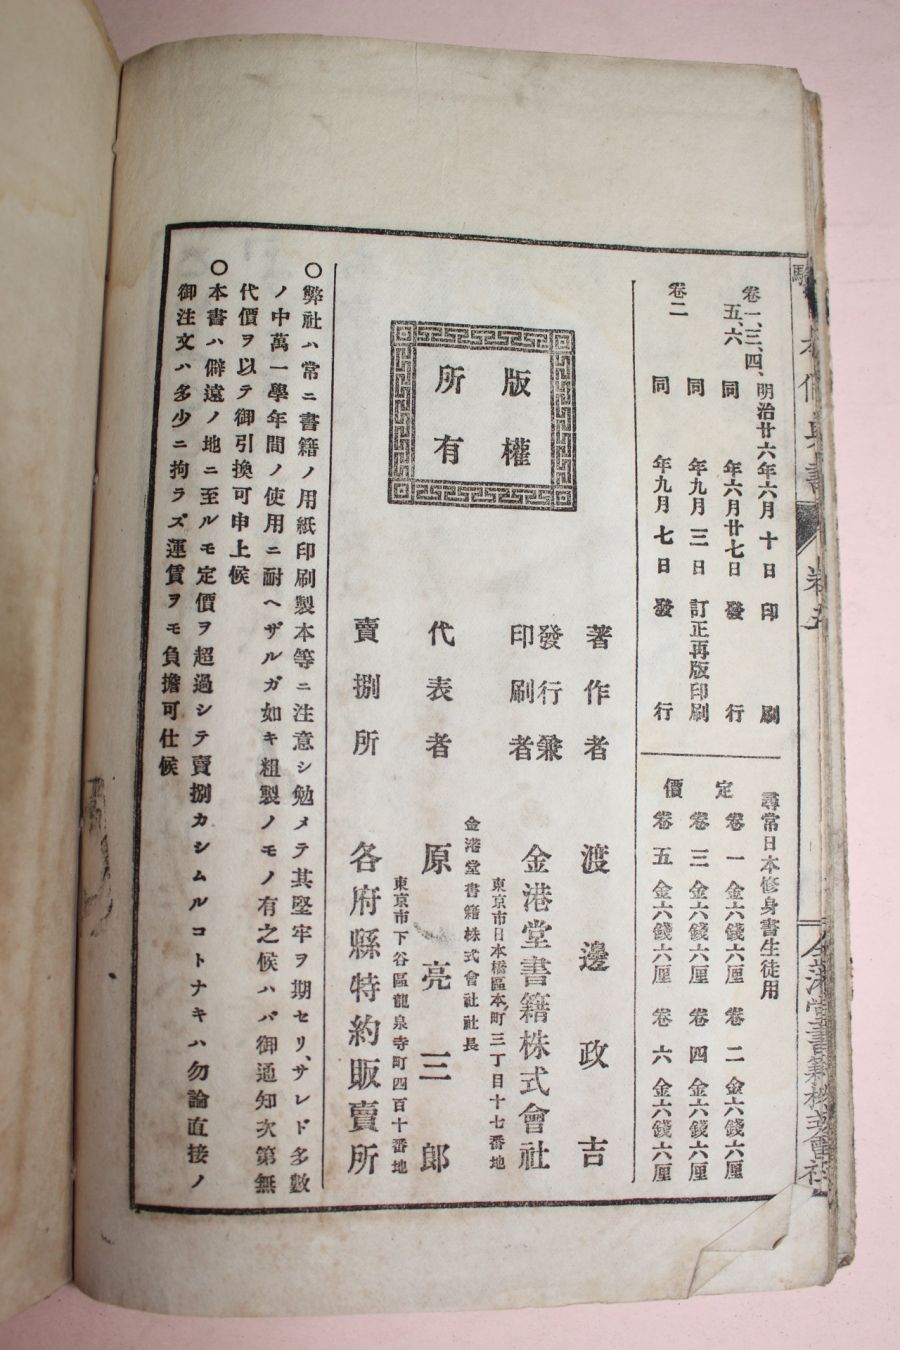 卷一、三、四、
五、六
明治廿六年六月十日印刷
同年六月廿七日發行
卷二
同年九月三日訂正再版印刷
同年九月七日發行
尋常日本修身書生徒用
定價
卷一金六錢六厘 卷二金六錢六厘
卷三金六錢六厘 卷四金六錢六厘
卷五金六錢六厘 卷六金六錢六厘
版權
所有
著作者 渡邊政吉
發行兼
印刷者 金港堂書籍株式會社
東京市日本橋區本町三丁目十七番地
金港堂書籍株式會社社長
代表者 原亮三郎
東京市下谷區龍泉寺町四百十番地
賣捌所 各府縣特約販賣所
○弊社ハ常ニ書籍ノ用紙印刷製本等ニ注意シ勉メテ其堅牢ヲ期セリ、サレド多數
ノ中萬一學年間ノ使用ニ耐ヘザルガ如キ粗製ノモノ有之候ハバ御通知次第無
代價ヲ以テ御引換可申上候
○本書ハ僻遠ノ地ニ至ルモ定價ヲ超過シテ賣捌カシムルコトナキハ勿論直接ノ
御注文ハ多少ニ拘ラズ運賃ヲモ負擔可仕候
本修身書
卷五
金港堂書籍株式會社